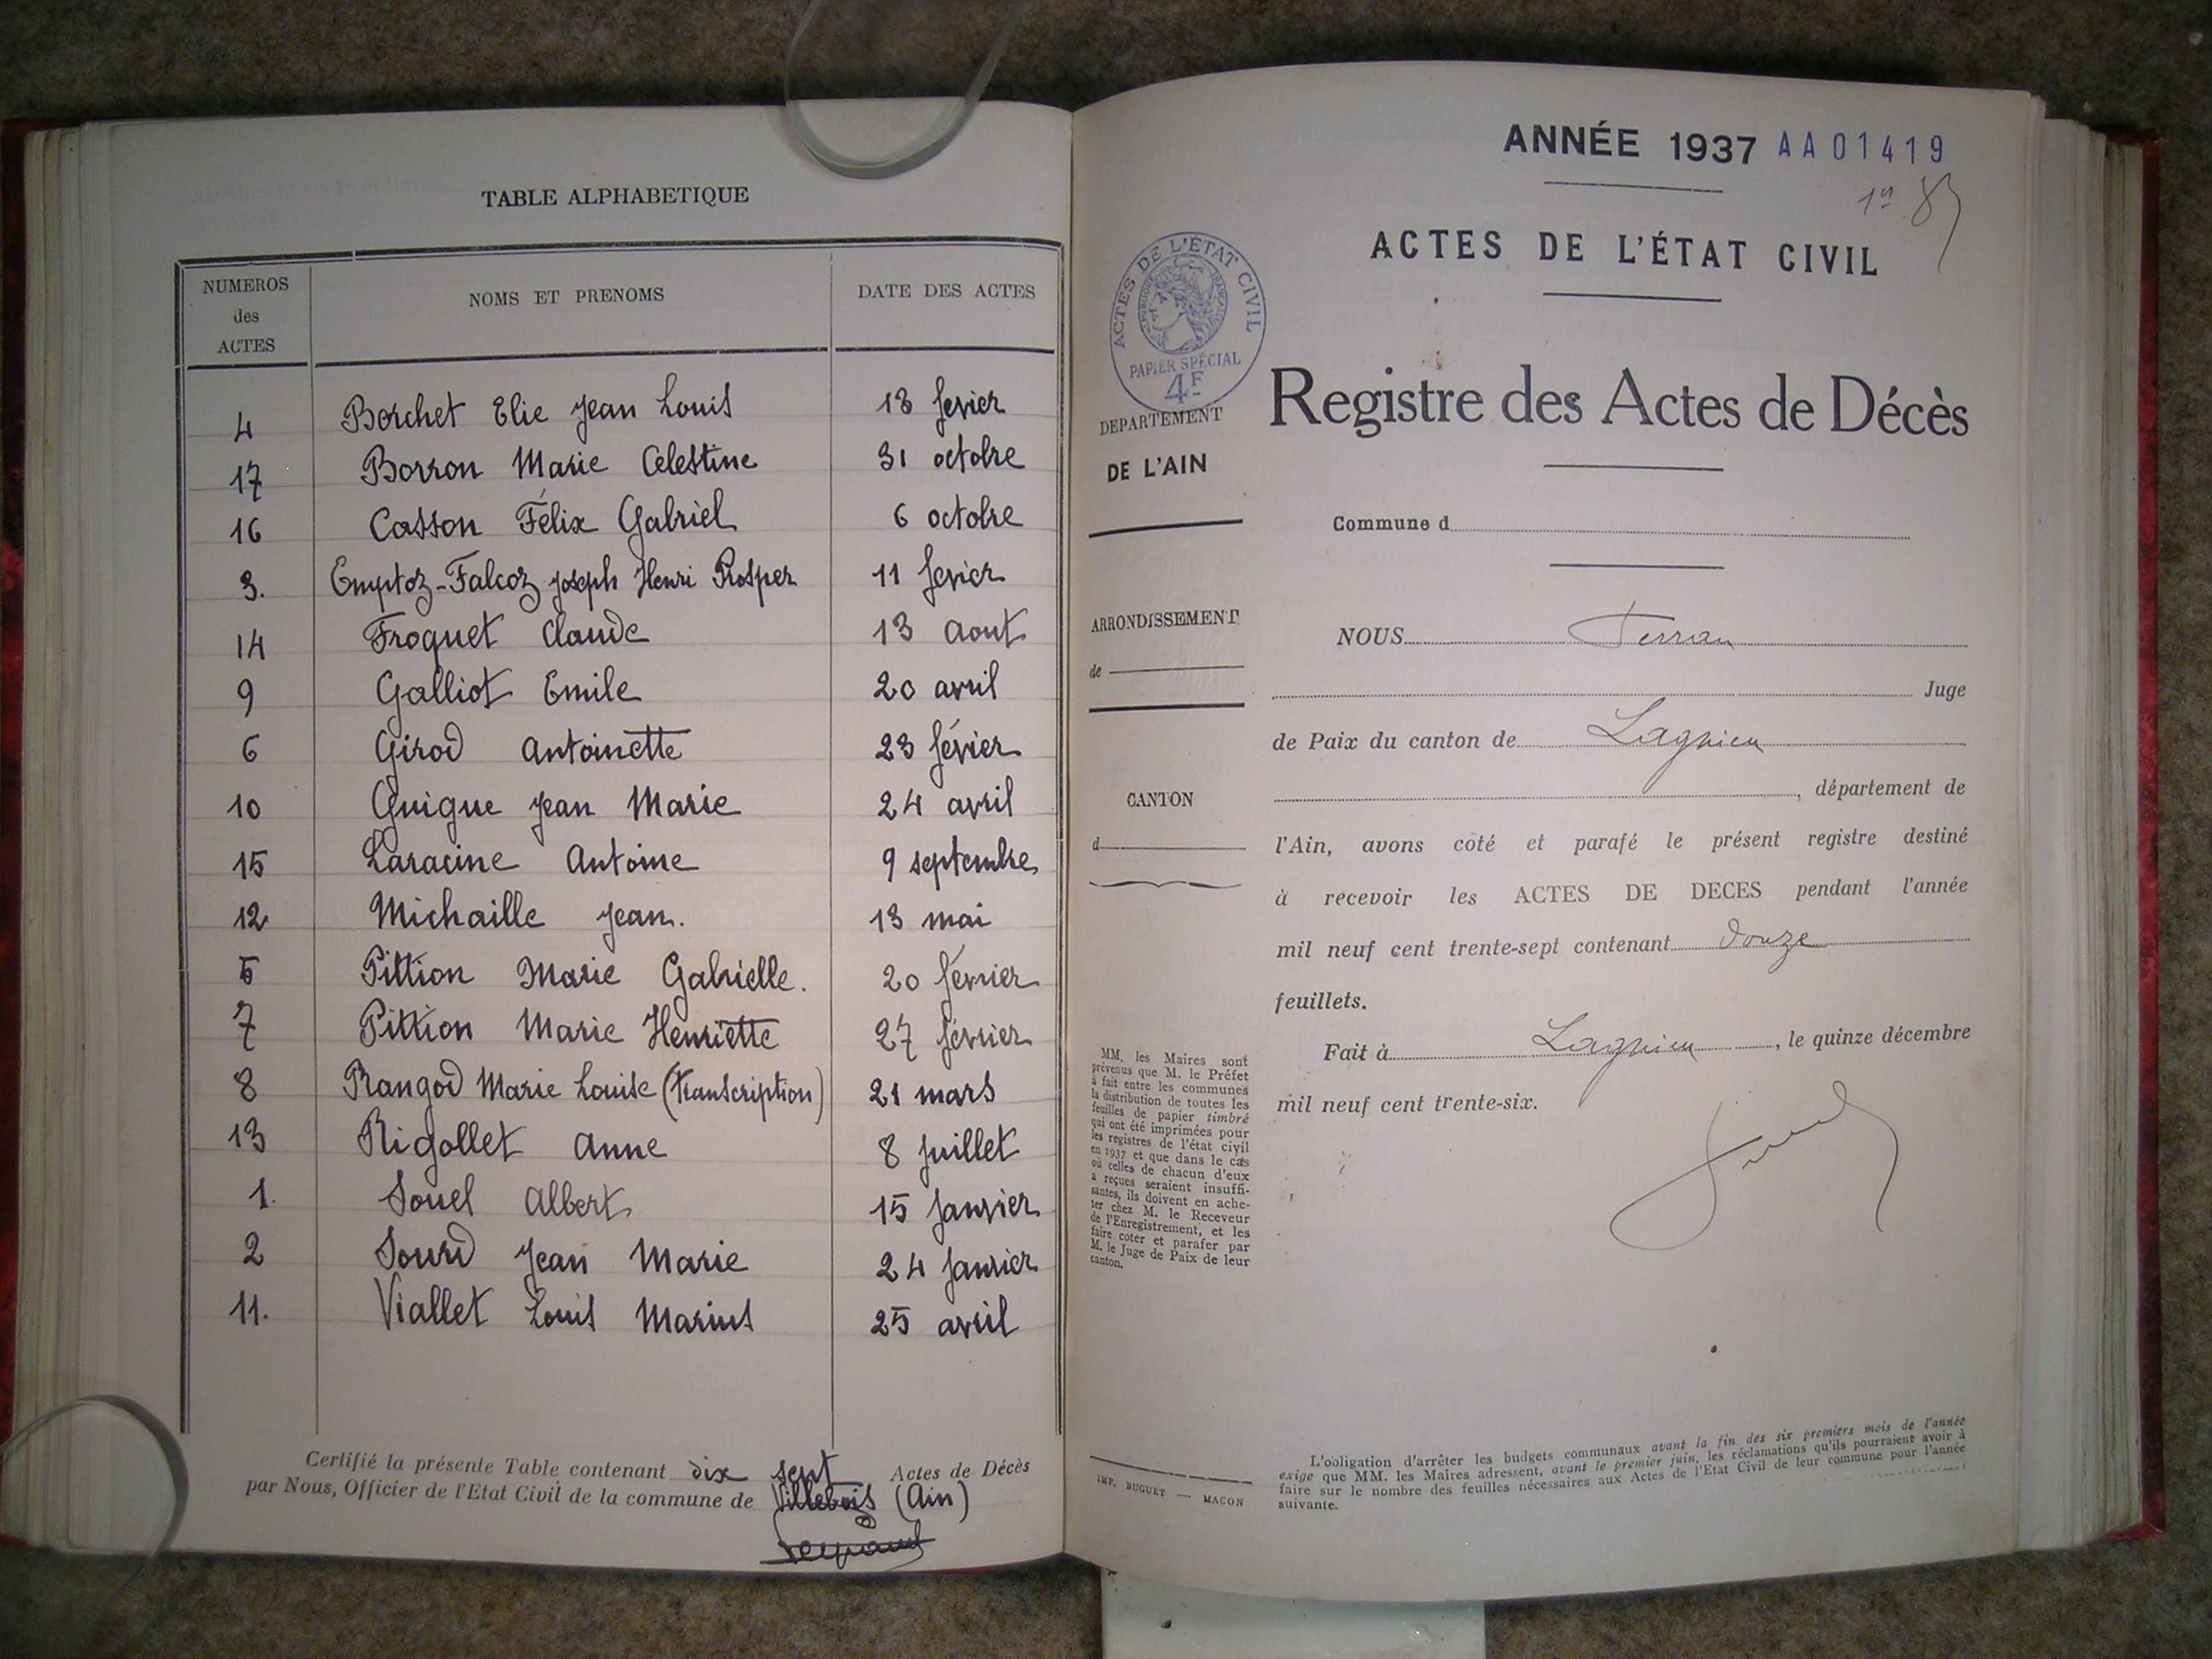 TABLE ALPHABETIQUE
NUMEROS des ACTES NOMS ET PRENOMS DATE DES ACTES
4 Borchet Elie Jean Louis 18 fevier
17 Borron Marie Celestine 31 octobre
16 Casson Félix Gabriel 6 octobre
3. Emptoz-Falcoz Joseph Henri Prosper 11 fevier
14 Froquet Claude 13 aout
9 Galliot Emile 20 avril
6 Girod Antoinette 23 févier
10 Guigue Jean Marie 24 avril
15 Laracine Antoine 9 septembre
12 Michaille Jean. 13 mai
5 Pittion Marie Gabrielle. 20 février
7 Pittion Marie Henriette 27 février
8 Rangod Marie Louise (transcription) 21 mars
13 Rigollet Anne 8 juillet
1. Souel Albert 15 janvier
2 Sourd Jean Marie 24 janvier
11. Viallet Louis Marius 25 avril
Certifié la présente Table contenant dix sept Actes de Décès
par Nous, Officier de l'Etat Civil de la commune de Villebois (Ain)
ANNÉE 1937 AA01419
ACTES DE L'ÉTAT CIVIL
ACTES DE L'ÉTAT CIVIL
RÉPUBLIQUE FRANÇAISE
PAPIER SPÉCIAL
4F
DEPARTEMENT
DE L'AIN
ARRONDISSEMENT
de
CANTON
d
MM. les Maires sont
prévenus que M. le Préfet
à fait entre les communes
la distribution de toutes les
feuilles de papier timbré
qui ont été imprimées pour
les registres de l'état civil
en 1937 et que dans le cas
où celles de chacun d'eux
a reçues seraient insuffi-
santes, ils doivent en ache-
ter chez M. le Receveur
de l'Enregistrement, et les
faire coter et parafer par
M. le Juge de Paix de leur
canton.
IMP. BUGUET — MACON
Registre des Actes de Décès
Commune d
NOUS
Juge
de Paix du canton de Lagnieu
, département de
l'Ain, avons coté et parafé le présent registre destiné
à recevoir les ACTES DE DECES pendant l'année
mil neuf cent trente-sept contenant douze
feuillets.
Fait à Lagnieu, le quinze décembre
mil neuf cent trente-six.
L'obligation d'arrêter les budgets communaux avant la fin des six premiers mois de l'année
exige que MM. les Maires adressent, avant le premier juin, les réclamations qu'ils pourraient avoir à
faire sur le nombre des feuilles nécessaires aux Actes de l'Etat Civil de leur commune pour l'année
suivante.